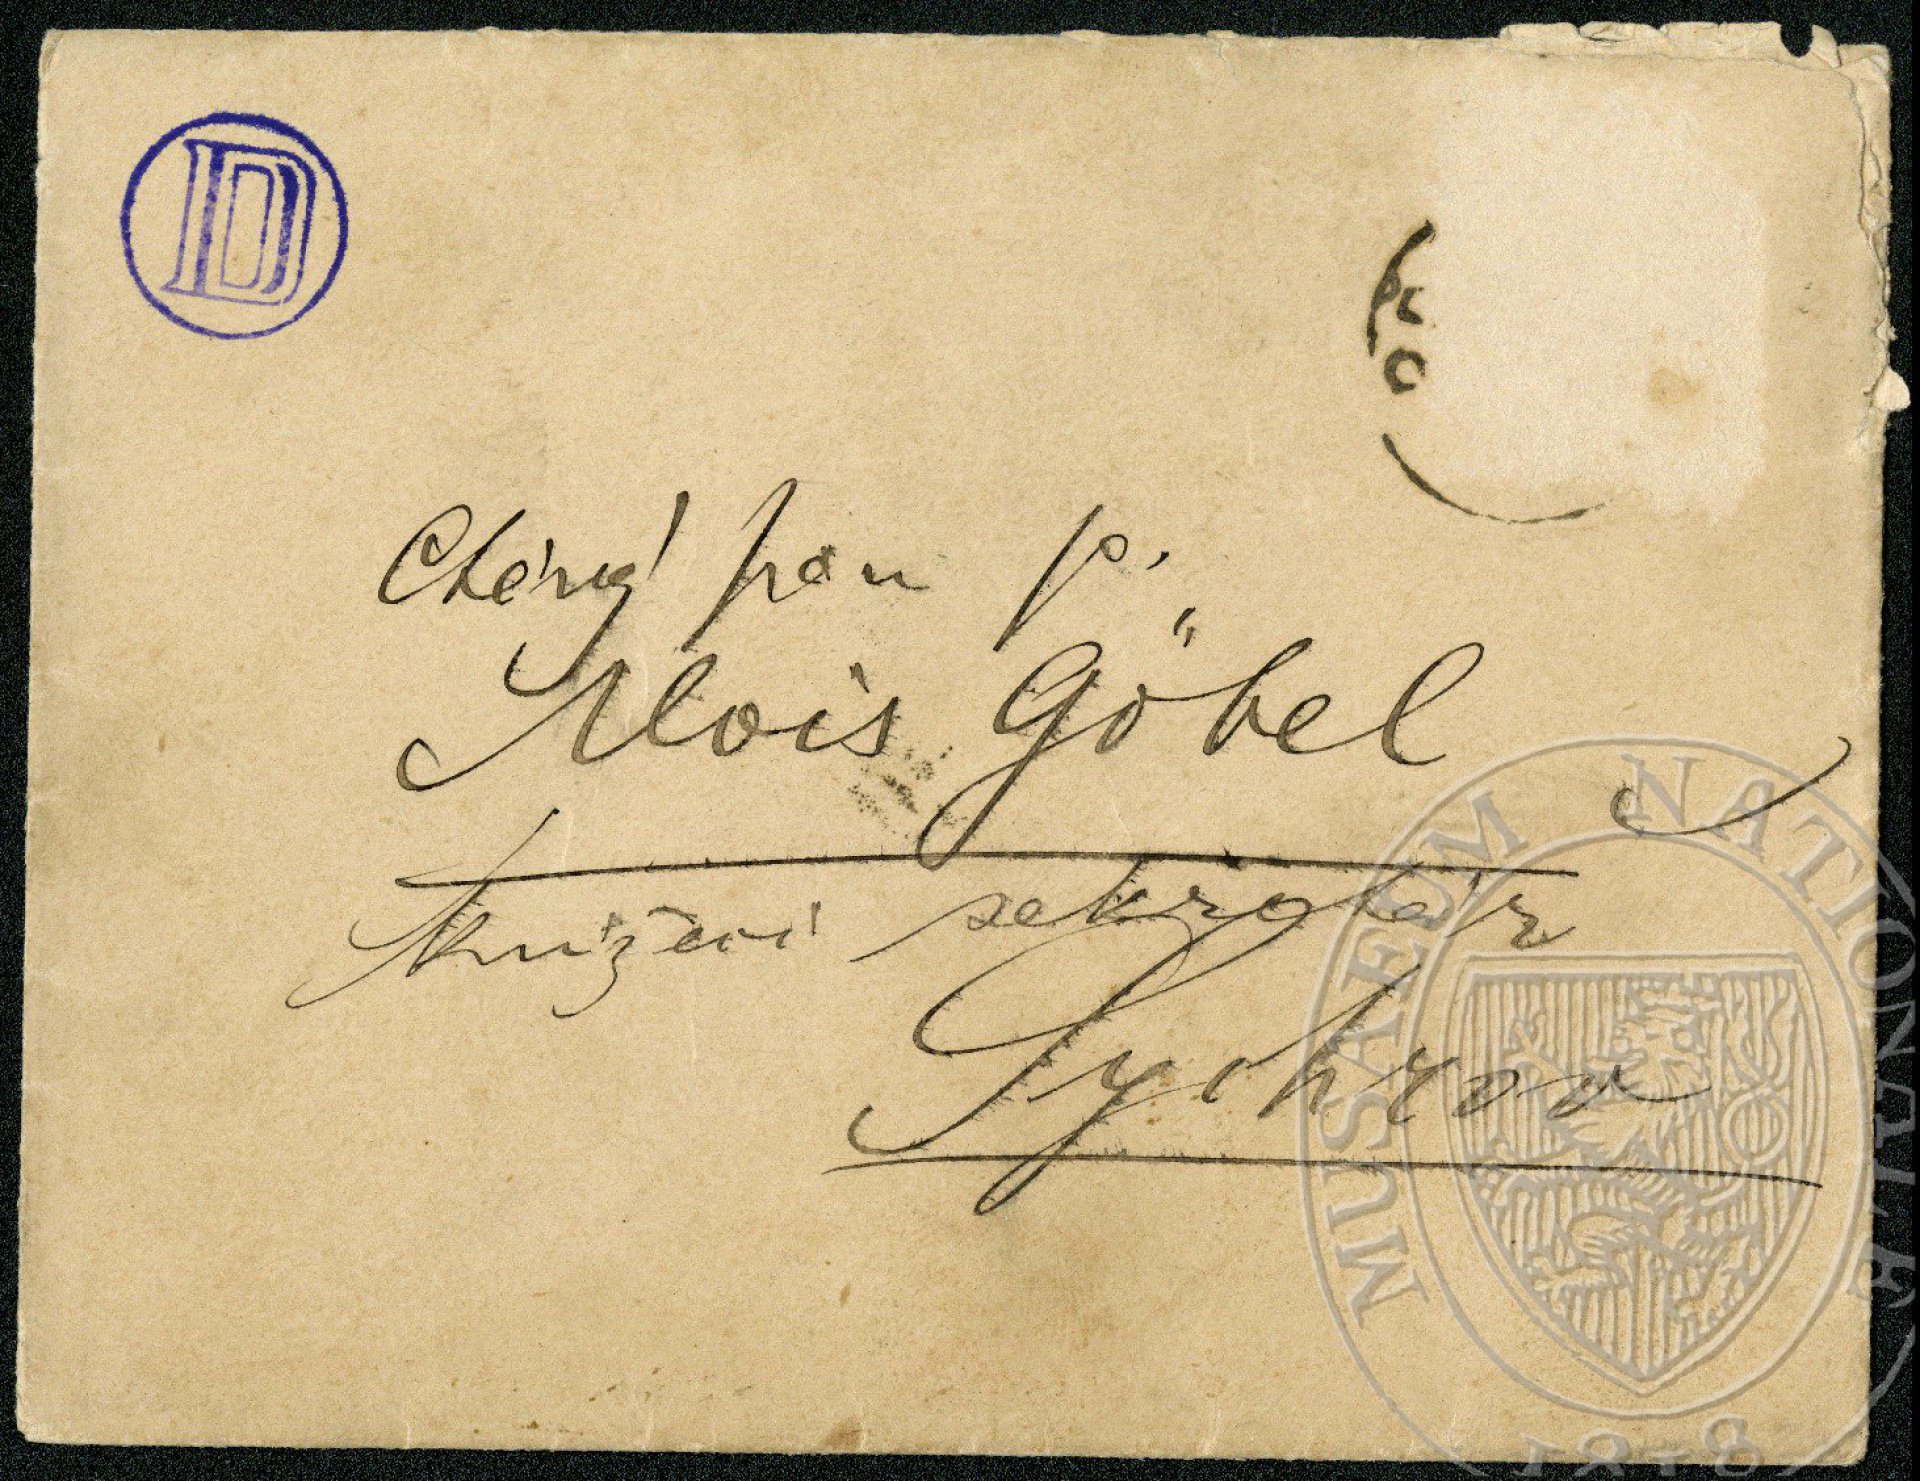 D
Ctěný pan p.
Alois Göbel
knížecí sekretár
Sychrov
MUSAEUM NATIONALE
1818